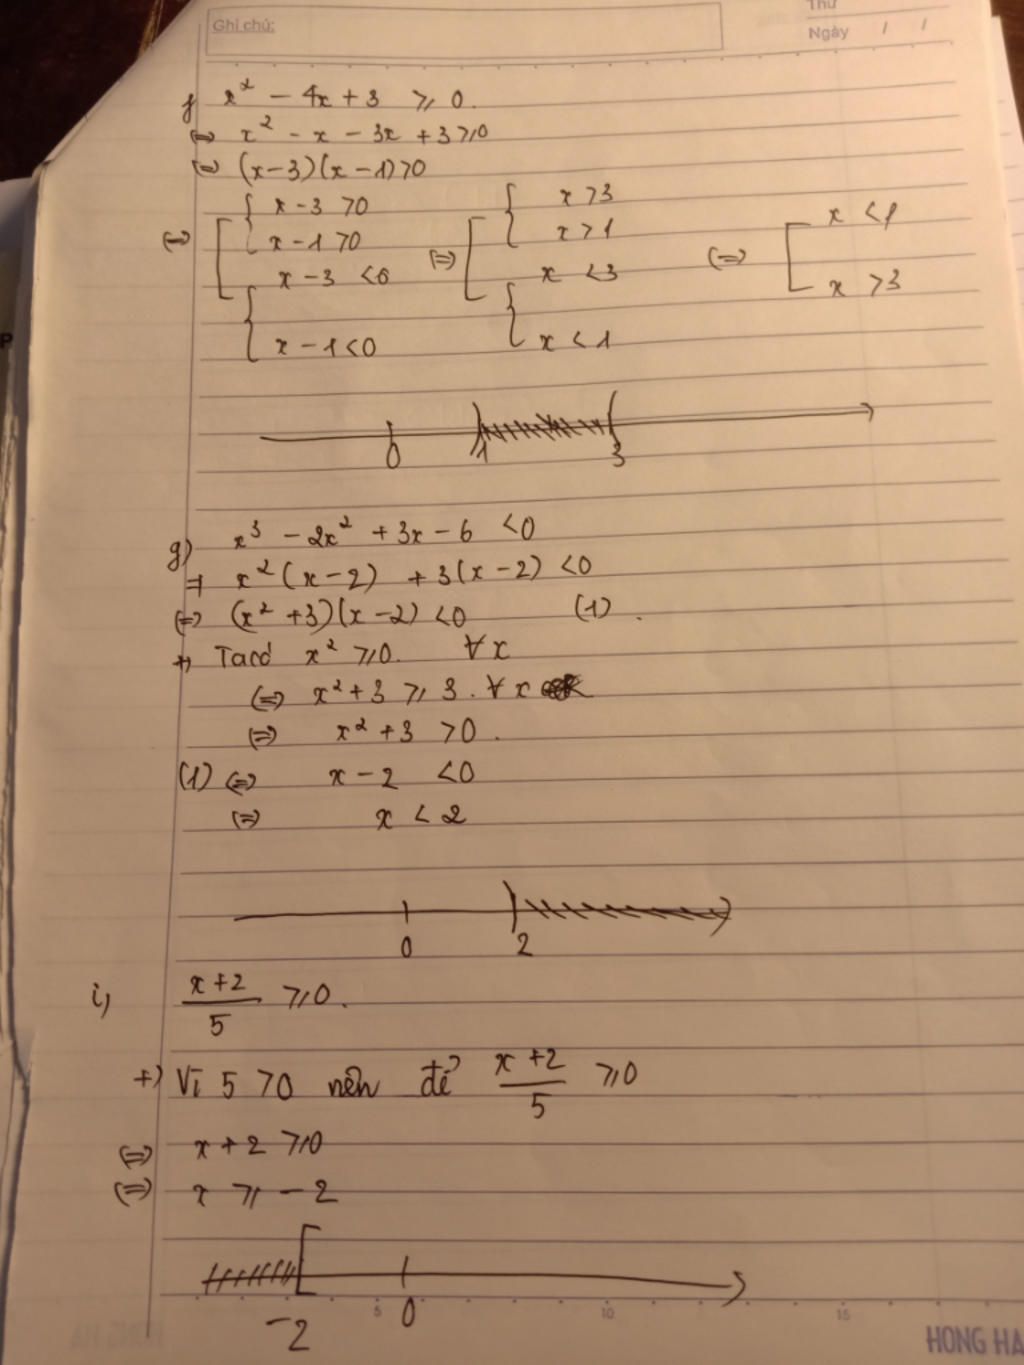 Ghi chú:
Thứ
Ngày / /
f x² - 4x + 3 ≥ 0.
⇔ x² - x - 3x + 3 ≥ 0
⇔ (x-3)(x-1) > 0
⇔ [ { x-3 > 0 ⇔ [ { x > 3 ⇔ [ x < 1
x-1 > 0 x > 1
x-3 < 0 x < 3 x > 3
{ x-1 < 0 { x < 1
0 1 3
g) x³ - 2x² + 3x - 6 < 0
⇒ x²(x-2) + 3(x-2) < 0
⇔ (x²+3)(x-2) < 0 (1).
+, Ta có x² ≥ 0. ∀x
⇔ x² + 3 ≥ 3. ∀x
⇔ x² + 3 > 0.
(1) ⇔ x - 2 < 0
⇔ x < 2
0 2
i, (x+2)/5 ≥ 0.
+) Vì 5 > 0 nên để (x+2)/5 ≥ 0
⇔ x + 2 ≥ 0
⇔ x ≥ -2
-2 0
5 10 15
HONG HA